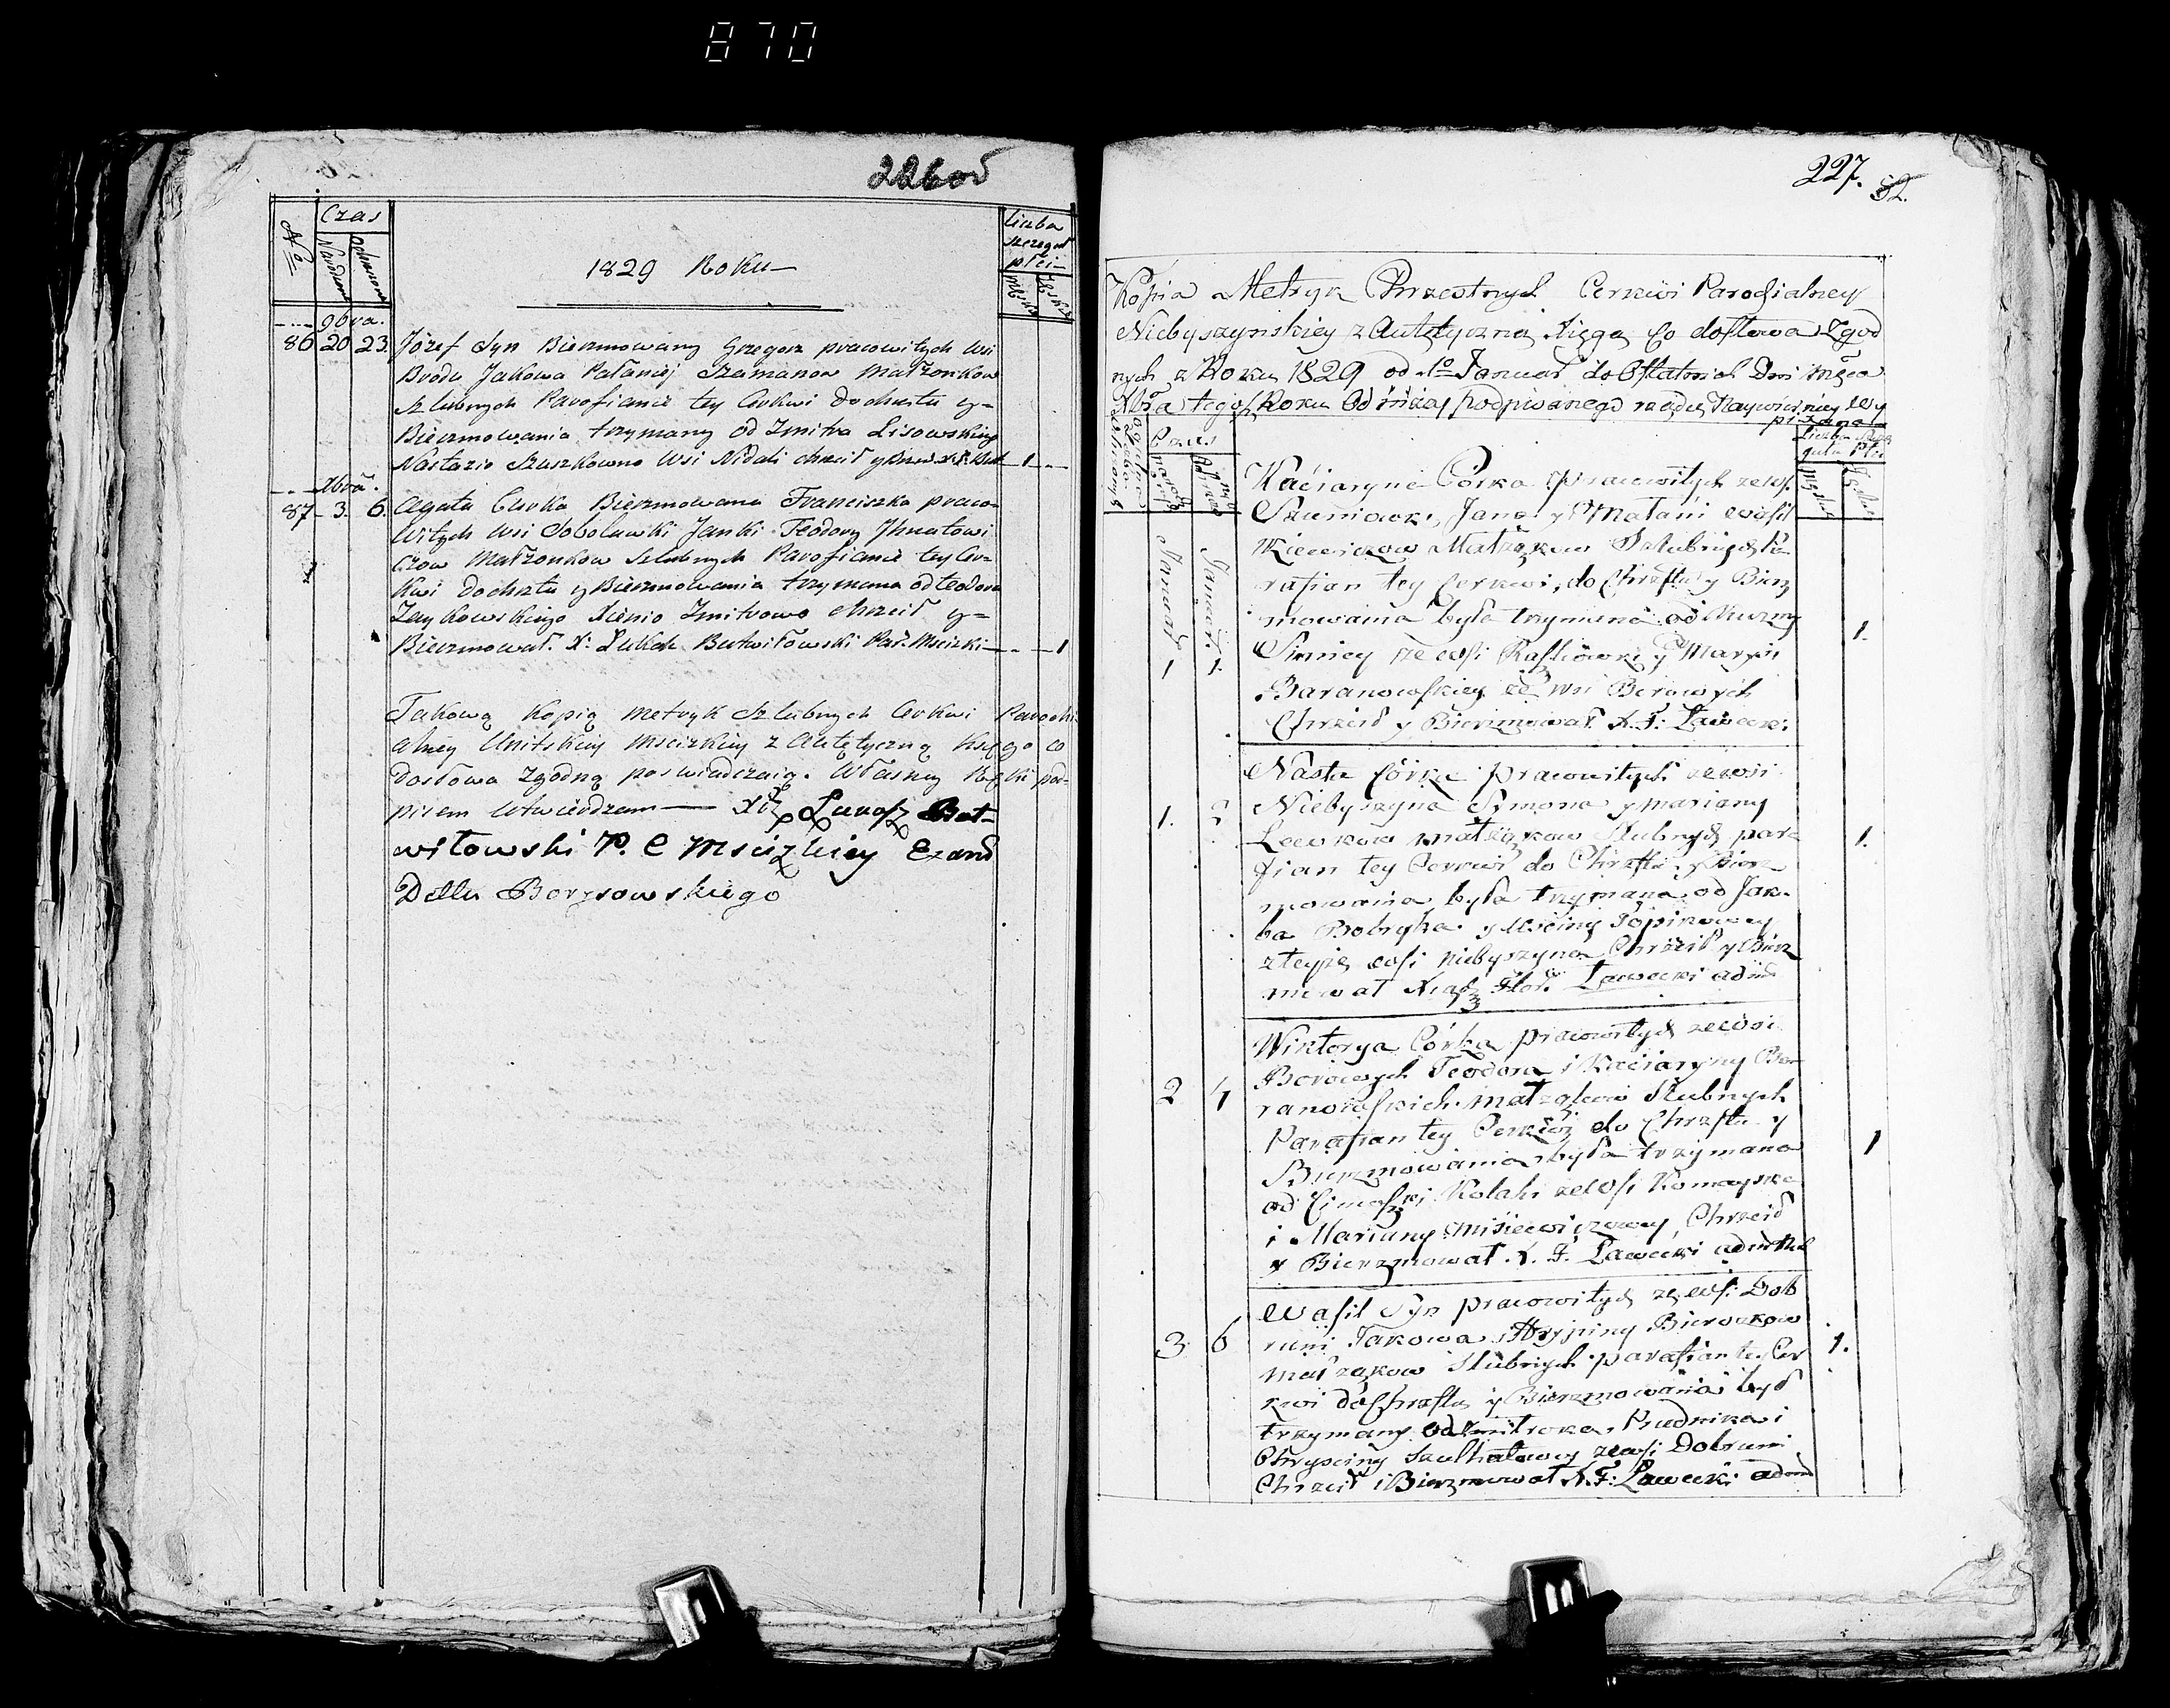 870
226 об
Czas
Nro
Narodzenia
Ochrzczenia
Liczba
szczegul
płci
Męska
Żeńska
1829 Roku
9bra.
86 20 23. Józef Syn Bierzmowany Grzegorz pracowitych Wsi
Brodu Jakowa Pałaniej Szamanow Małżonkow
Szlubnych Parofianie tey Cerkwi do chrztu y
Bierzmowania trzymany od Zmitra Lisowskiego
Nastazio Szuszkowno Wsi Nidali chrcił y Bierz. X. Ł. But 1
Xbra.
87 3. 6. Agata Curka Bierzmowana Franciszka praco
witych Wsi Sobolawki Janki Teodory Jhnatowi
czow Małżonkow Szlubnych Parofianie tey Cer-
kwi do chrztu y Bierzmowania trzymana od teodora
Zenkowskiego Xienio Zmitrowo chrcił y
Bierzmował. X: Łukasz Butwiłowski Par. Mscizki 1
Takową Kopią Metryk Szlubnych Cerkwi Parochi
alney Unitskiey Mscizkiey z Autętyczną Księgo co
dosłowa Zgodną poswiadczaią. Własney Ręki pod-
pisem Utwierdzam — Xdz Łukasz But-
wiłowski P. C Mscizkiey Exam
Dettu Borysowskiego
227. 52.
Kopia Metryk Chrzestnych Cerkwi Parofialney
Niebyszynskiey z Autętyczną Xięgą Co do słowa Zgod
nych z Roku 1829 od 1o Januar do Ostatnich Dni Męca
Xbra tegoż Roku Od niżey podpisanego rządcy Naywierniey wy
pisana
Czas
Liczba Szcze
gulu Płci
Męska
Januar
Januar
Kaciaryna Córka Pracowitych ze wsi
Szuniowki Jana y Matani Wasil
kiewiczow Małżąkow Szlubnych Pa
rafian tey Cerkwi, do Chrztu y Bierz
mowania była trzymana od Kuzmy
Simicy ze wsi Rafałowki y Maryi
1 1. 1.
Baranowskiey ze wsi Borowych
Chrzcił y Bierzmował X. F: Ławecki
Nasta Córka Pracowitych ze wsi
1. 2 Niebyszyna Symona y Mariany
Lewkow małżąkow Szlubnych para 1.
fian tey Cerkwi do Chrztu y Bierz
mowania była trzymana od Jaku
ba Bobryka y Uściny Topirowey
z teyże wsi Niebyszyna Chrzcił y Bierz
mował Xiądz Flor: Ławecki adm
Wiktorya Córka Pracowitych ze wsi
Borowych Teodora i Kaciaryny Ba
2 4 ranowskich małżąkow Szlubnych
Parafian tey Cerkwi do Chrztu y
Bierzmowania była trzymana 1
od Cimoszki Kolahi ze wsi Komayska
i Mariany Misiewiczowey, Chrzcił
y Bierzmował X. F. Ławecki admttul
Wasil Syn pracowitych ze wsi Dob
runi Jakowa Ahrypiny Bierozkow
3 6 małżąkow Szlubnych parafian tey Cer 1.
kwi do Chrztu y Bierzmowania był
trzymany od Zmitroka Prudnika i
Chryściny Szulhatowey ze wsi Dobruni
Chrzcił i Bierzmował X. F: Ławecki adm